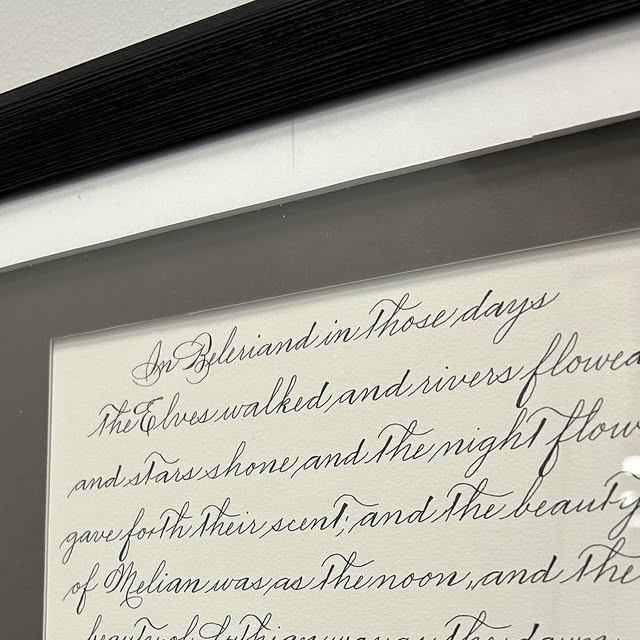 In Beleriand in those days
the Elves walked and rivers flowed
and stars shone and the night flow
gave forth their scent; and the beauty
of Melian was as the noon, and the
beauty of Lúthian was as the dawn